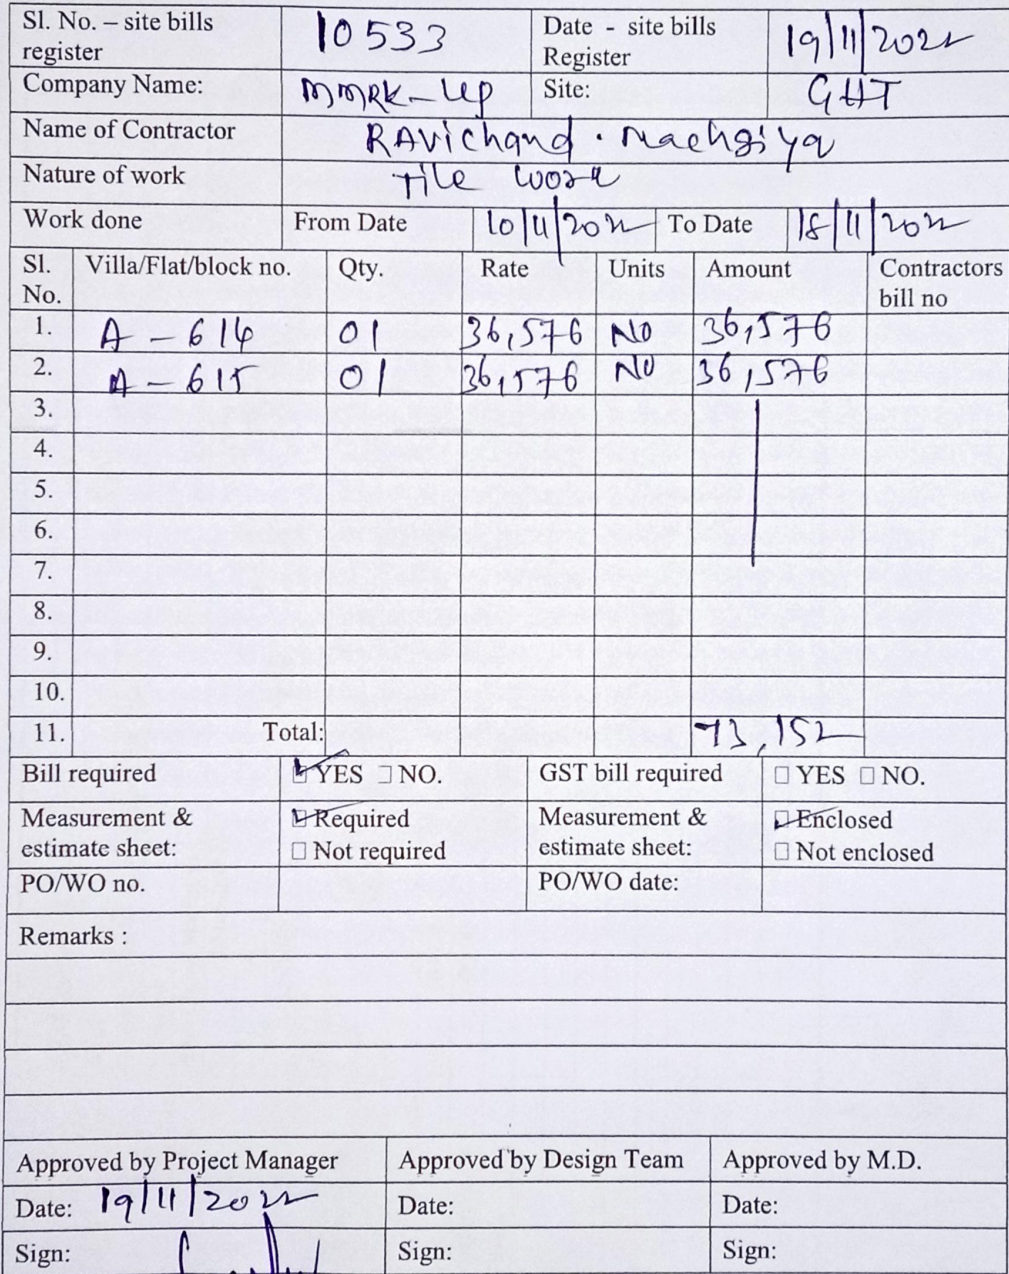 Sl. No. – site bills register 10533 Date - site bills Register 19/11/2022
Company Name: MMRK-LLP Site: GHT
Name of Contractor RAVichand. Nachgiya
Nature of work Tile work
Work done From Date 10/11/2022 To Date 18/11/2022
Sl. No. Villa/Flat/block no. Qty. Rate Units Amount Contractors bill no
1. A - 614 01 36,576 NO 36,576
2. A - 615 01 36,576 NO 36,576
3.
4.
5.
6.
7.
8.
9.
10.
11. Total: 73,152
Bill required YES NO. GST bill required YES NO.
Measurement & estimate sheet: Required Not required Measurement & estimate sheet: Enclosed Not enclosed
PO/WO no. PO/WO date:
Remarks :
Approved by Project Manager Approved by Design Team Approved by M.D.
Date: 19/11/2022 Date: Date:
Sign: Sign: Sign: